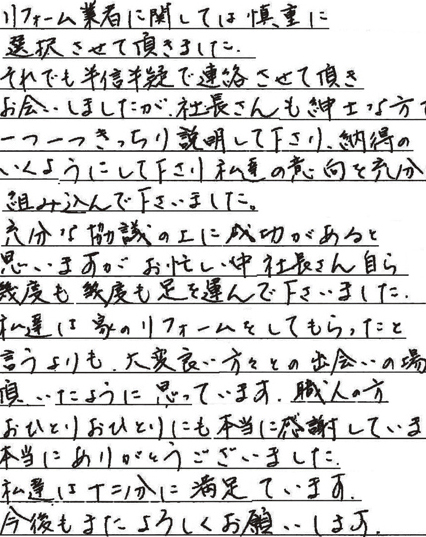 リフォーム業者に関しては慎重に
選択させて頂きました.
それでも半信半疑で連絡させて頂き
お会いしましたが、社長さんも紳士な方で
一つ一つきっちり説明して下さり、納得の
いくようにして下さり私達の意向を充分
組み込んで下さいました。
充分な協議の上に成功があると
思いますが お忙しい中 社長さん自ら
幾度も 幾度も足を運んで下さいました.
私達は家のリフォームをしてもらったと
言うよりも、大変良い方々との出会いの場
頂いたように思っています. 職人の方
おひとりおひとりにも本当に感謝していま
本当にありがとうございました.
私達は十二分に満足ています.
今後もまたよろしくお願いします.